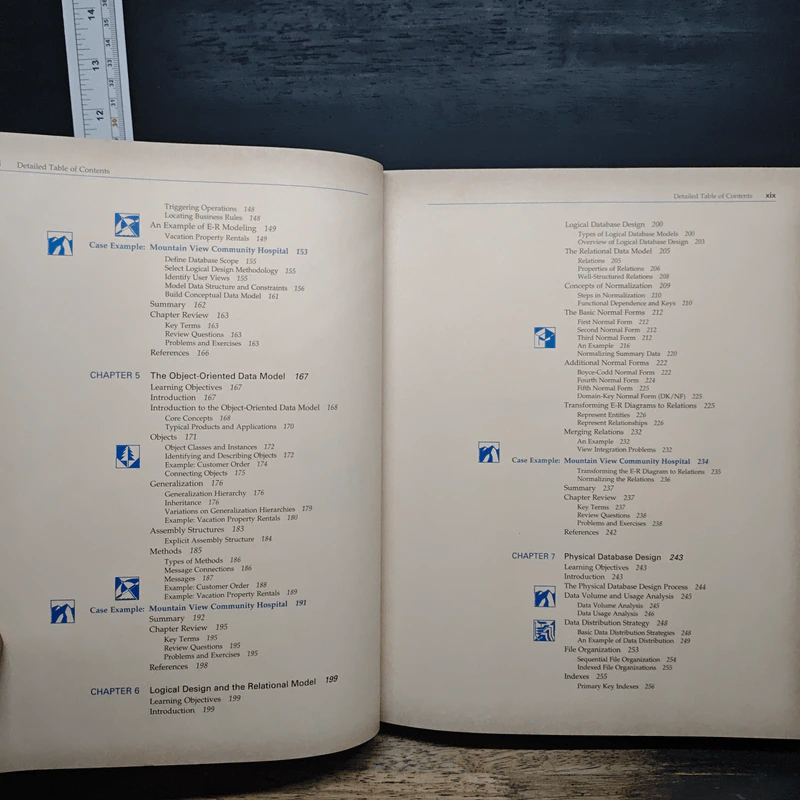 Detailed Table of Contents
Triggering Operations 148
Locating Business Rules 148
An Example of E-R Modeling 149
Vacation Property Rentals 149
Case Example: Mountain View Community Hospital 153
Define Database Scope 155
Select Logical Design Methodology 155
Identify User Views 155
Model Data Structure and Constraints 156
Build Conceptual Data Model 161
Summary 162
Chapter Review 163
Key Terms 163
Review Questions 163
Problems and Exercises 163
References 166
CHAPTER 5 The Object-Oriented Data Model 167
Learning Objectives 167
Introduction 167
Introduction to the Object-Oriented Data Model 168
Core Concepts 168
Typical Products and Applications 170
Objects 171
Object Classes and Instances 172
Identifying and Describing Objects 172
Example: Customer Order 174
Connecting Objects 175
Generalization 176
Generalization Hierarchy 176
Inheritance 176
Variations on Generalization Hierarchies 179
Example: Vacation Property Rentals 180
Assembly Structures 183
Explicit Assembly Structure 184
Methods 185
Types of Methods 186
Message Connections 186
Messages 187
Example: Customer Order 188
Example: Vacation Property Rentals 189
Case Example: Mountain View Community Hospital 191
Summary 192
Chapter Review 195
Key Terms 195
Review Questions 195
Problems and Exercises 195
References 198
CHAPTER 6 Logical Design and the Relational Model 199
Learning Objectives 199
Introduction 199
Detailed Table of Contents xix
Logical Database Design 200
Types of Logical Database Models 200
Overview of Logical Database Design 203
The Relational Data Model 205
Relations 205
Properties of Relations 206
Well-Structured Relations 208
Concepts of Normalization 209
Steps in Normalization 210
Functional Dependence and Keys 210
The Basic Normal Forms 212
First Normal Form 212
Second Normal Form 212
Third Normal Form 212
An Example 216
Normalizing Summary Data 220
Additional Normal Forms 222
Boyce-Codd Normal Form 222
Fourth Normal Form 224
Fifth Normal Form 225
Domain-Key Normal Form (DK/NF) 225
Transforming E-R Diagrams to Relations 225
Represent Entities 226
Represent Relationships 226
Merging Relations 232
An Example 232
View Integration Problems 232
Case Example: Mountain View Community Hospital 234
Transforming the E-R Diagram to Relations 235
Normalizing the Relations 236
Summary 237
Chapter Review 237
Key Terms 237
Review Questions 238
Problems and Exercises 238
References 242
CHAPTER 7 Physical Database Design 243
Learning Objectives 243
Introduction 243
The Physical Database Design Process 244
Data Volume and Usage Analysis 245
Data Volume Analysis 245
Data Usage Analysis 246
Data Distribution Strategy 248
Basic Data Distribution Strategies 248
An Example of Data Distribution 249
File Organization 253
Sequential File Organization 254
Indexed File Organizations 255
Indexes 255
Primary Key Indexes 256
14
13
12